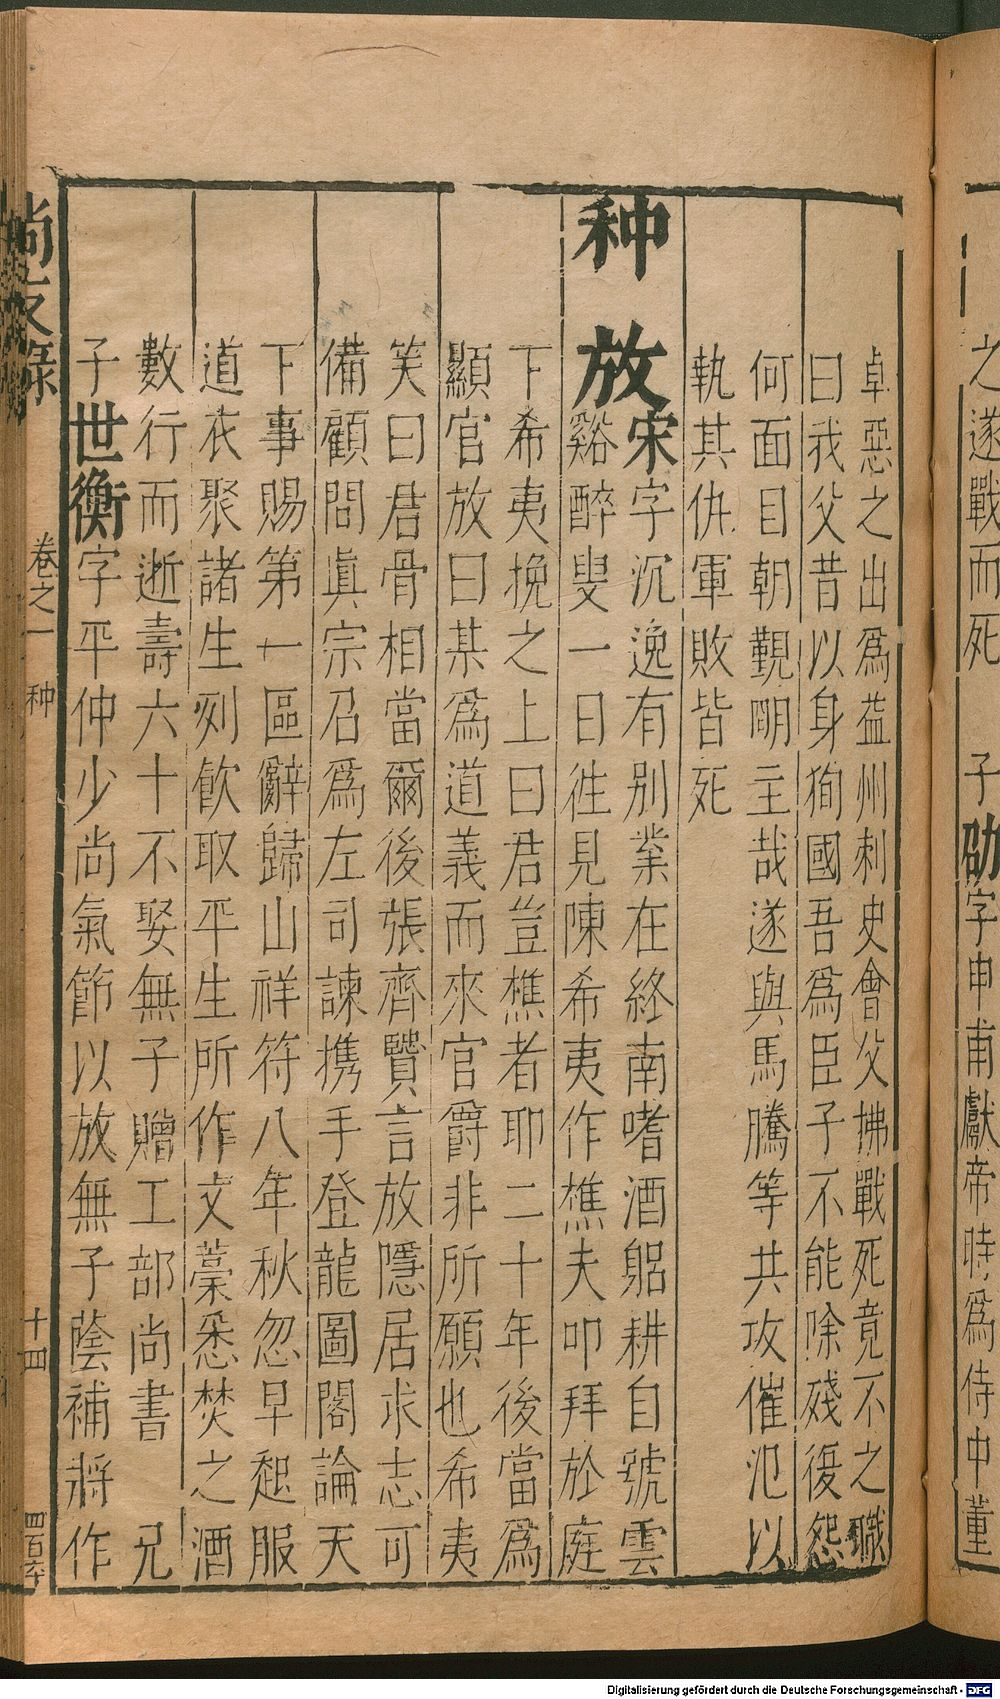 之遂戰而死 子劭字申甫獻帝時爲侍中董
卓惡之出爲益州刺史會父拂戰死竟不之職
曰我父昔以身徇國吾爲臣子不能除殘復怨
何面目朝覲明主哉遂與馬騰等共攻催氾以
執其仇軍敗皆死
种放宋字沉逸有別業在終南嗜酒躬耕自號雲
谿醉叟一日徃見陳希夷作樵夫叩拜於庭
下希夷挽之上曰君豈樵者耶二十年後當爲
顯官放曰某爲道義而來官爵非所願也希夷
笑曰君骨相當爾後張齊賢言放隱居求志可
備顧問眞宗召爲左司諫携手登龍圖閣論天
下事賜第一區辭歸山祥符八年秋忽早起服
道衣聚諸生列飮取平生所作文藁悉焚之酒
數行而逝壽六十不娶無子贈工部尚書 兄
子世衡字平仲少尚氣節以放無子蔭補將作
尚友錄 卷之一 种 十四 四百六十
Digitalisierung gefördert durch die Deutsche Forschungsgemeinschaft - DFG